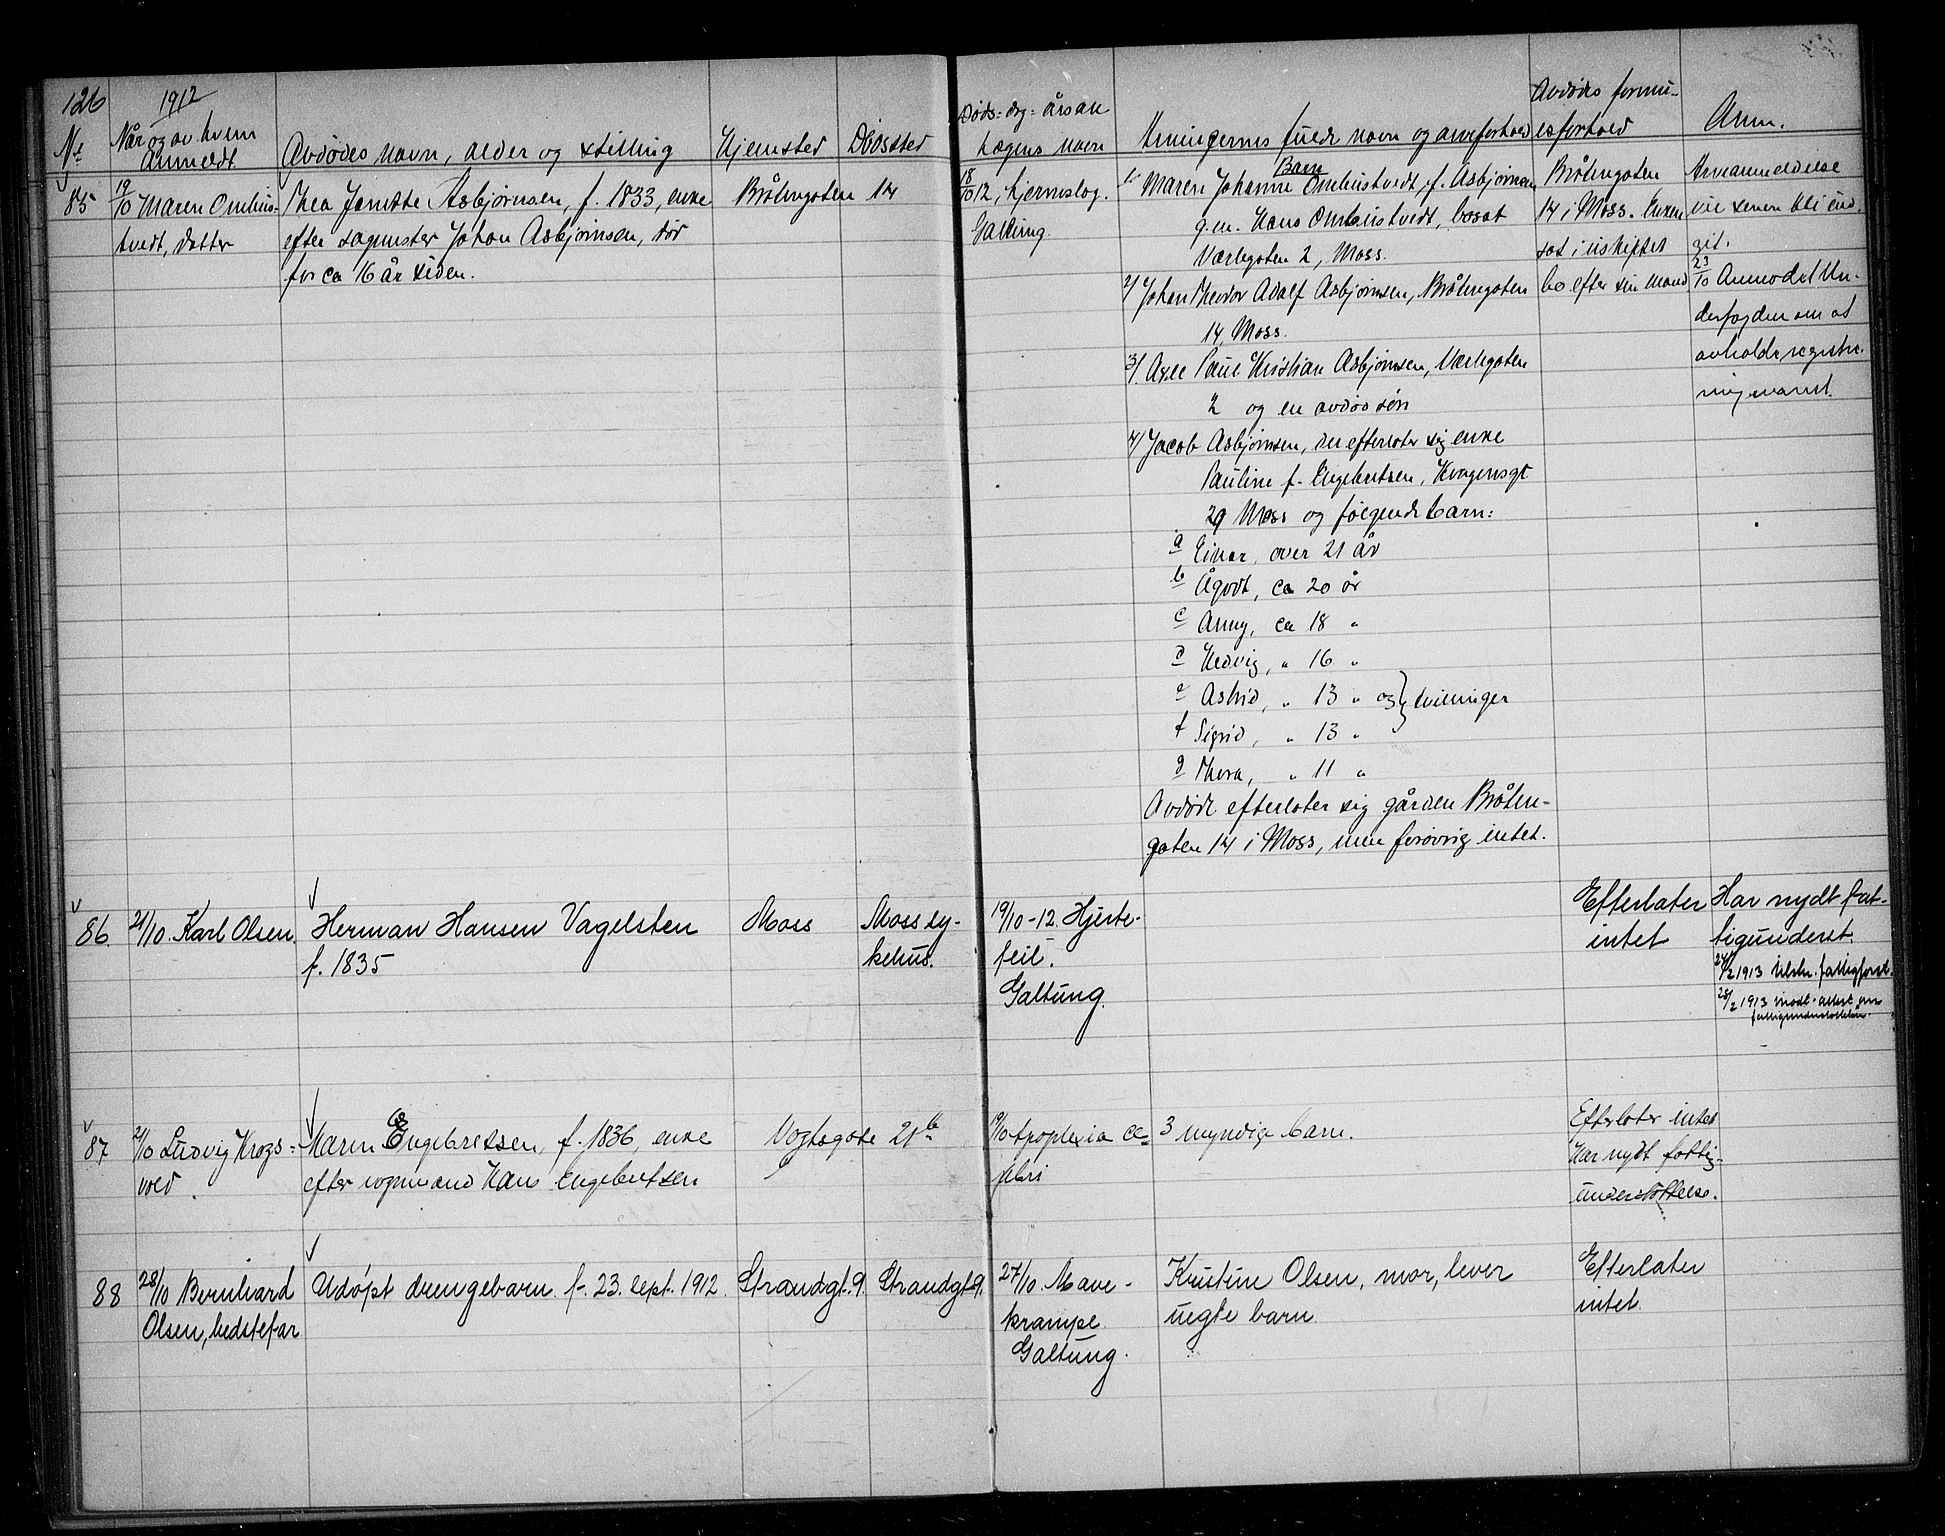 126
1912
No
Når og av hvem
Anmeldt
Avdødes navn, alder og stilling
Hjemsted
Dødssted
Døds-dag-årsak
Lægens navn
Arvingernes fulde navn og arveforhold
Avdødes formu-
esforhold
Anm.
85
19/10 Maren Ombus-
tvedt, datter
Thea Jonette Asbjørnsen, f. 1833, enke
efter sagmester Johan Asbjørnsen, død
for ca 16 år siden.
Bråtengaten 14
18/10 12, hjerneslag.
Galtung.
Barn
1/ Maren Johanne Ombustvedt, f. Asbjørnsen
g.m. Hans Ombustvedt, bosat
Værlegaten 2, Moss.
2/ Johan Theodor Adolf Asbjørnsen, Bråtengaten
14, Moss.
3/. Axel Paul Kristian Asbjørnsen, Værlegaten
2 og en avdød søn
4/ Jacob Asbjørnsen, der efterlater sig enke
Pauline f. Engebretsen, Kragensgt
29 Moss og følgende barn:
a Einar, over 21 år
b Ågodt, ca 20 år
c Anny, ca 18 "
d Hedvig, " 16 "
e Astrid, " 13 " og } tvillinger
f Sigrid, " 13 "
g Thora, " 11 "
Avdøde efterlater sig gården Bråten-
gaten 14 i Moss, men forøvrig intet.
Bråtengaten
14 i Moss. Enken
sat i uskiftet
bo efter sin mand
Arveanmeldelse
vil senere bli ind-
git.
23/10 Anmodet Un-
derfogden om at
avholde registre-
ring
86
21/10. Karl Olsen.
Herman Hansen Vagelsten
f. 1835
Moss
Moss sy-
kehus.
19/10-12. Hjerte-
feil.
Galtung.
Efterlater
intet
Har nydt fat-
tigunderst.
24/2 1913 tilskr. fattigforst.
28/2 1913 modt. attest om
fattigunderstøttelse.
87
21/10 Ludvig Krogs-
vold
Maren Engebretsen, f. 1836, enke
efter vognmand Hans Engebretsen
Vogtsgate 21 b
19/10 Apoplexia ce-
rebri
3 myndige barn.
Efterlater intet
Har nydt fattig-
understøttelse.
88
28/10 Bernhard
Olsen, bedstefar
Udøpt drengebarn f. 23. sept. 1912
Strandgt. 9.
Strandgt 9.
27/10. Mave-
krampe.
Galtung.
Kristine Olsen, mor, lever
uegte barn.
Efterlater
intet.